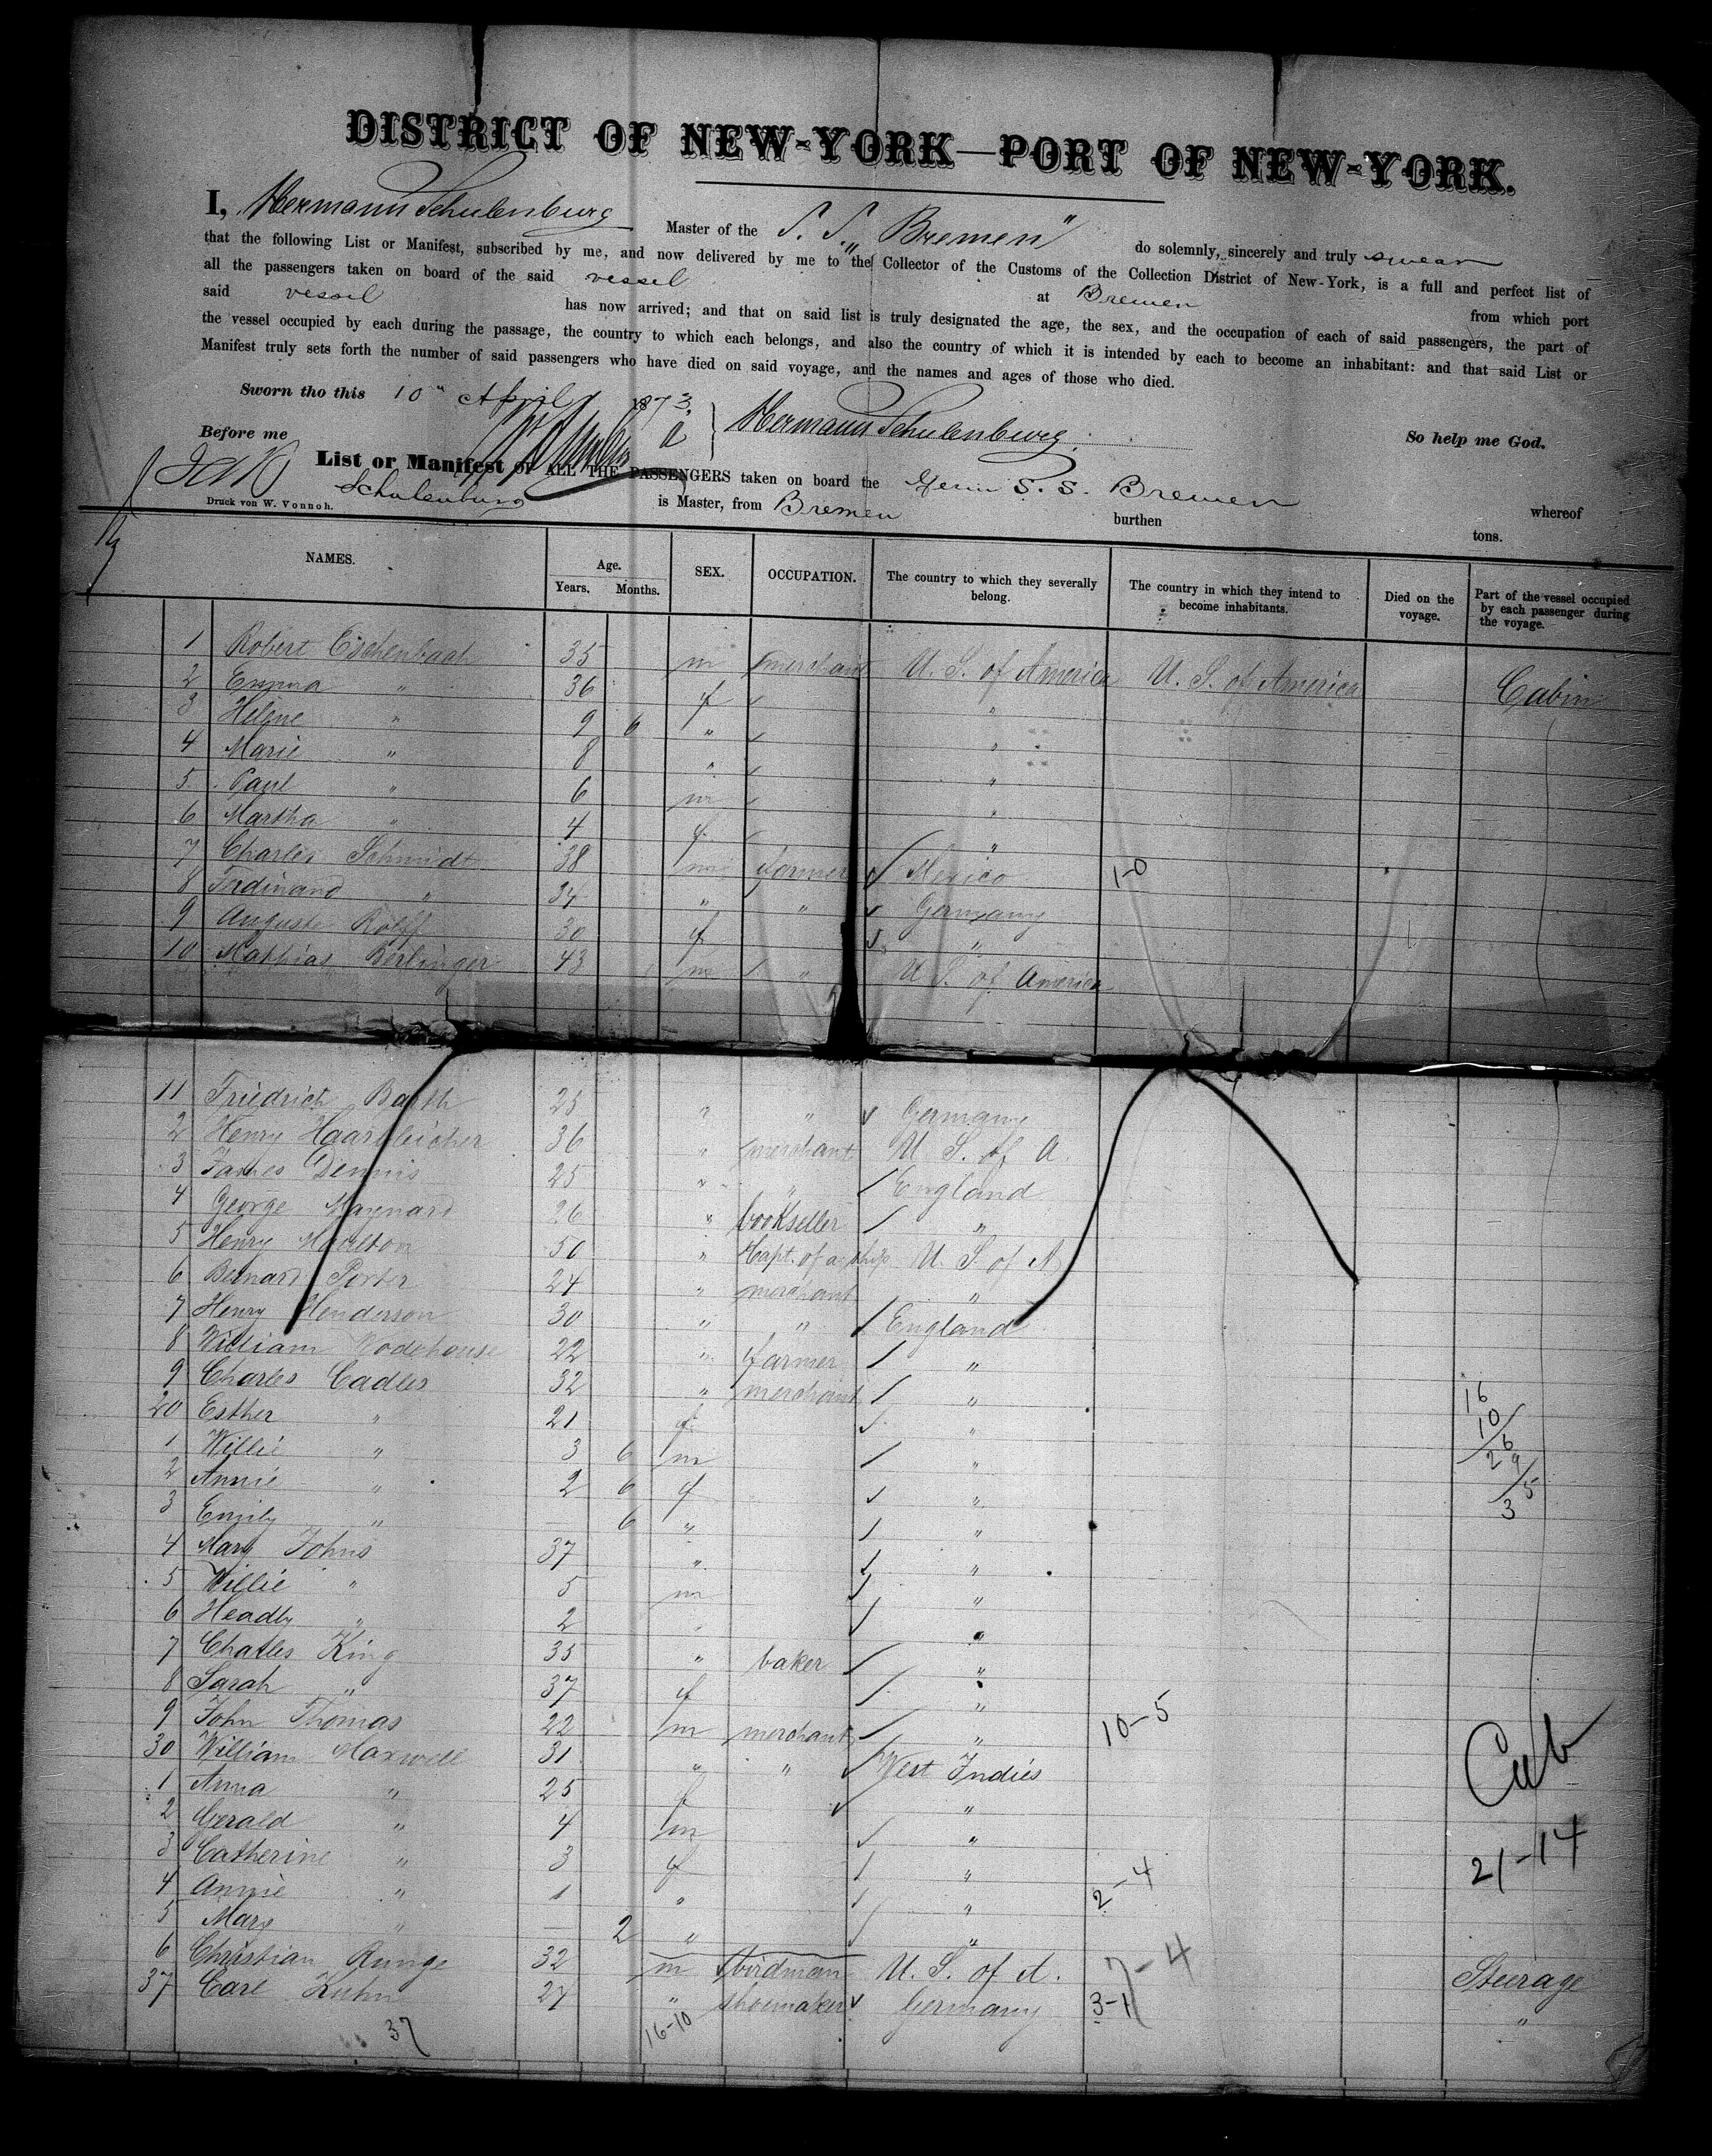 DISTRICT OF NEW-YORK—PORT OF NEW-YORK.
I, Hermann Schulenburg Master of the S. S. „Bremen" do solemnly, sincerely and truly swear
that the following List or Manifest, subscribed by me, and now delivered by me to the Collector of the Customs of the Collection District of New-York, is a full and perfect list of
all the passengers taken on board of the said vessel at Bremen from which port
said vessel has now arrived; and that on said list is truly designated the age, the sex, and the occupation of each of said passengers, the part of
the vessel occupied by each during the passage, the country to which each belongs, and also the country of which it is intended by each to become an inhabitant: and that said List or
Manifest truly sets forth the number of said passengers who have died on said voyage, and the names and ages of those who died.
Sworn tho this 10" April 1873. Hermann Schulenburg So help me God.
Before me
List or Manifest OF ALL THE PASSENGERS taken on board the S. S. Bremen whereof
Schulenburg is Master, from Bremen burthen tons.
Druck von W. Vonnoh.
NAMES. Age. Years. Months. SEX. OCCUPATION. The country to which they severally belong. The country in which they intend to become inhabitants. Died on the voyage. Part of the vessel occupied by each passenger during the voyage.
1 Robert Eschenbach 35 m merchant U. S. of America U. S. of America Cabin
2 Emma " 36 f "
3 Helene " 9 6 " "
4 Marie " 8 " "
5 Paul " 6 m "
6 Martha " 4 f "
7 Charles Schmidt 38 m farmer Mexico 1-0
8 Ferdinand " 34 " " Germany
9 Auguste Rolff 30 f "
10 Mathias Berlinger 43 m " U. S. of America
11 Friedrich Barth 25 " " Germany
2 Henry Haarbleicher 36 " merchant U. S. of A.
3 James Dennis 25 " " England
4 George Maynard 26 " bookseller "
5 Henry 50 " Capt. of a ship U. S. of A
6 Bernard Porter 24 " merchant "
7 Henry Henderson 30 " " England
8 William Wodehouse 22 " farmer "
9 Charles Cadles 32 " merchant "
20 Esther " 21 f "
1 Willie " 3 6 m "
2 Annie " 2 6 f "
3 Emily " — 6 " "
4 Mary Johns 37 " "
5 Willie " 5 m "
6 Headly " 2 " "
7 Charles King 35 " baker "
8 Sarah " 37 f "
9 John Thomas 22 m merchant " 10-5
30 William Maxwell 31 " " West Indies Cab
1 Anna " 25 f "
2 Gerald " 4 m "
3 Catherine " 3 f " 21-14
4 Annie " 1 " " 2-4
5 Mary " — 2 " "
6 Christian Runge 32 m birdman U. S. of A. 7-4 Steirage
37 Carl Kuhn 27 " shoemaker Germany 3-1 "
37 16-10